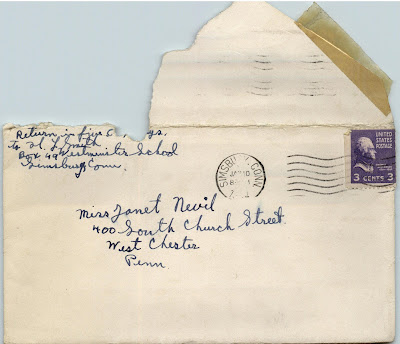 Return in five days,
to H. L. Smith
Box 49 Westminster School
Simsbury Conn.
SIMSBURY, CONN.
UNITED STATES
POSTAGE
3 CENTS 3
Miss Janet Nevil
400 South Church Street
West Chester
Penn.